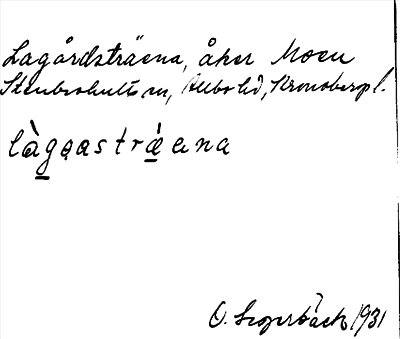 Lagårdsträena, åker Moen
Stenbrohults sn, Allbo hd, Kronobergs l.
làgaastráena
O. Segerbäck 1931